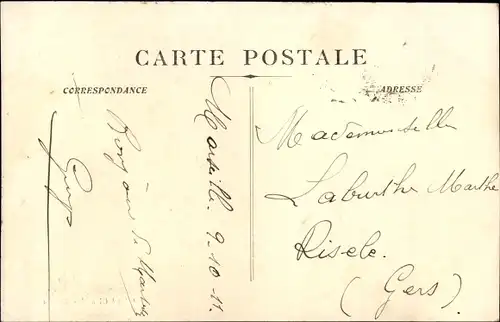 CARTE POSTALE
CORRESPONDANCE
ADRESSE
Marseille. 9-10-11.
Bonjour de
Mademoiselle
Laburthe Marthe
Riscle.
(Gers)